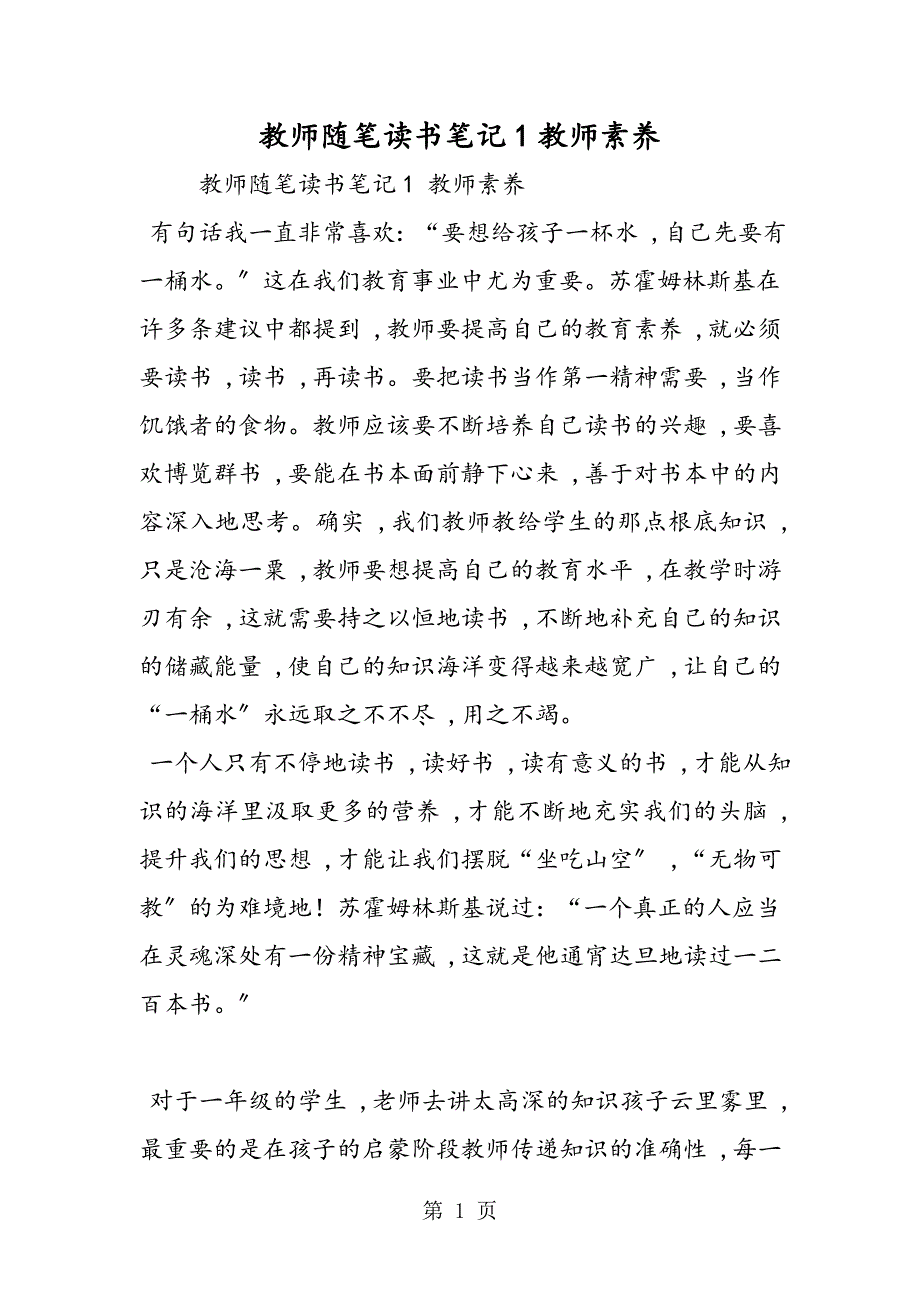 教师随笔读书笔记1教师素养
教师随笔读书笔记1 教师素养
有句话我一直非常喜欢:“要想给孩子一杯水 ,自己先要有
一桶水。〞这在我们教育事业中尤为重要。苏霍姆林斯基在
许多条建议中都提到 ,教师要提高自己的教育素养 ,就必须
要读书 ,读书 ,再读书。要把读书当作第一精神需要 ,当作
饥饿者的食物。教师应该要不断培养自己读书的兴趣 ,要喜
欢博览群书 ,要能在书本面前静下心来 ,善于对书本中的内
容深入地思考。确实 ,我们教师教给学生的那点根底知识 ,
只是沧海一粟 ,教师要想提高自己的教育水平 ,在教学时游
刃有余 ,这就需要持之以恒地读书 ,不断地补充自己的知识
的储藏能量 ,使自己的知识海洋变得越来越宽广 ,让自己的
“一桶水〞永远取之不不尽 ,用之不竭。
一个人只有不停地读书 ,读好书 ,读有意义的书 ,才能从知
识的海洋里汲取更多的营养 ,才能不断地充实我们的头脑 ,
提升我们的思想 ,才能让我们摆脱“坐吃山空〞 ,“无物可
教〞的为难境地!苏霍姆林斯基说过:“一个真正的人应当
在灵魂深处有一份精神宝藏 ,这就是他通宵达旦地读过一二
百本书。〞
对于一年级的学生 ,老师去讲太高深的知识孩子云里雾里 ,
最重要的是在孩子的启蒙阶段教师传递知识的准确性 ,每一
第 1 页